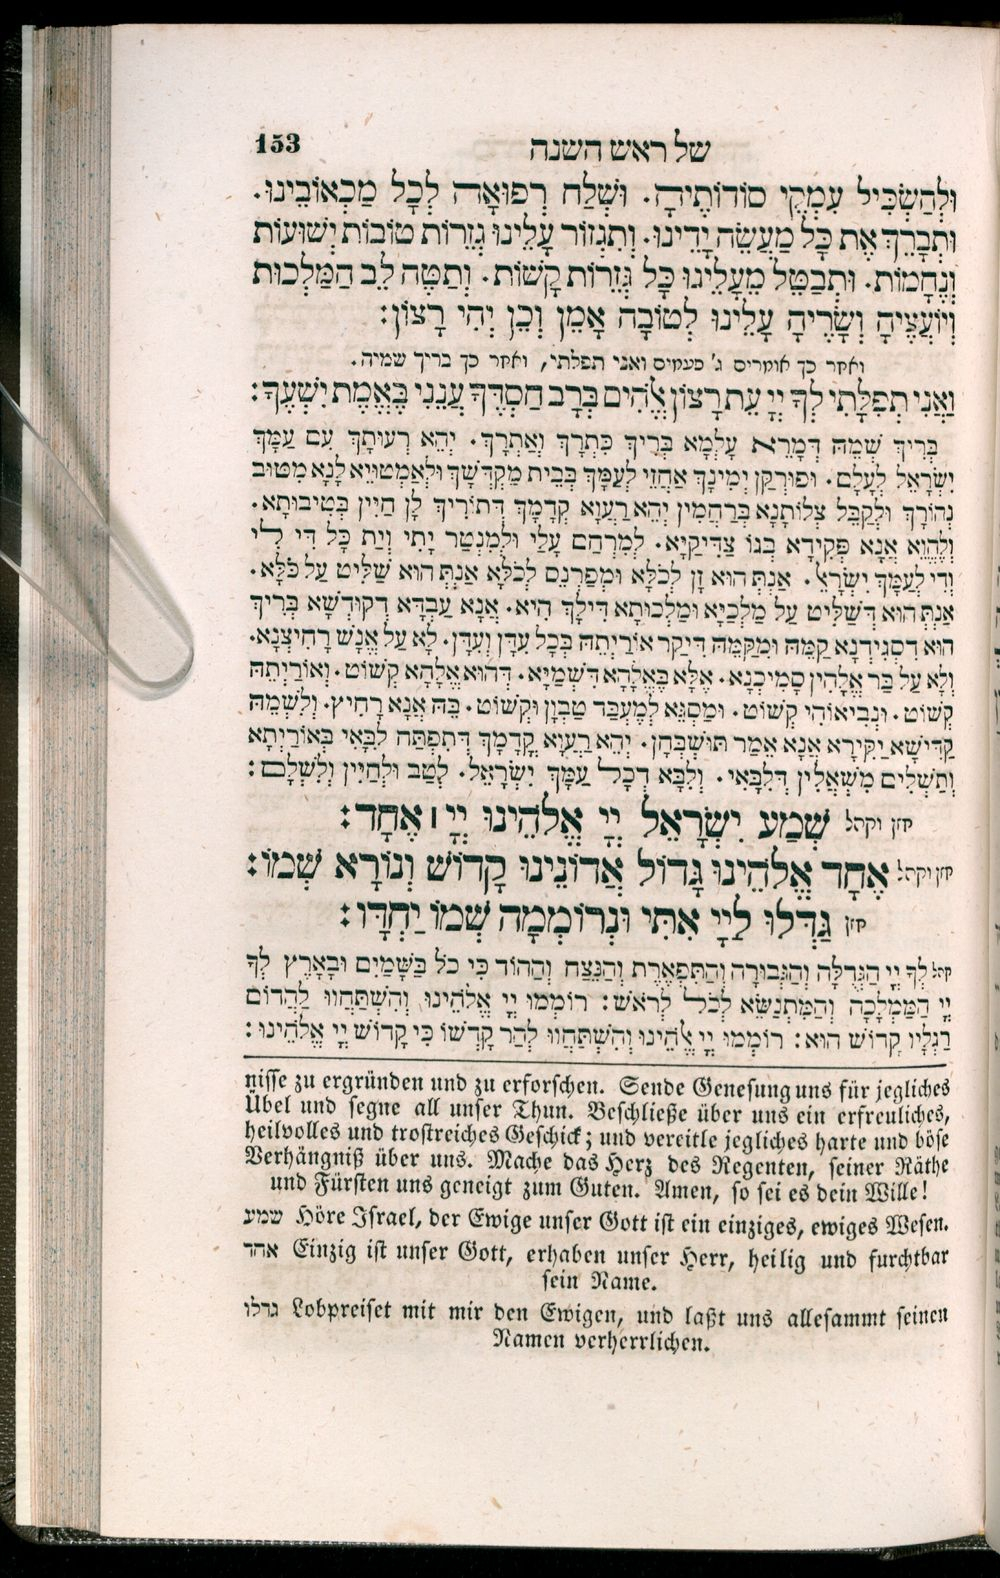 של ראש השנה 153
וּלְהַשְׂכִּיל עִמְקֵי סוֹדוֹתֶיהָ. וּשְׁלַח רְפוּאָה לְכָל מַכְאוֹבֵינוּ.
וּתְבָרֵךְ אֶת כָּל מַעֲשֵׂה יָדֵינוּ. וְתִגְזוֹר עָלֵינוּ גְּזֵרוֹת טוֹבוֹת יְשׁוּעוֹת
וְנֶחָמוֹת. וּתְבַטֵּל מֵעָלֵינוּ כָּל גְּזֵרוֹת קָשׁוֹת. וְתַטֶּה לֵב הַמַּלְכוּת
וְיוֹעֲצֶיהָ וְשָׂרֶיהָ עָלֵינוּ לְטוֹבָה אָמֵן וְכֵן יְהִי רָצוֹן:
ואחר כך אומרים ג׳ פעמים ואני תפלתי, ואחר כך בריך שמיה.
וַאֲנִי תְפִלָּתִי לְךָ יְיָ עֵת רָצוֹן אֱלֹהִים בְּרָב חַסְדֶּךָ עֲנֵנִי בֶּאֱמֶת יִשְׁעֶךָ:
בְּרִיךְ שְׁמֵהּ דְּמָרֵא עָלְמָא בְּרִיךְ כִּתְרָךְ וְאַתְרָךְ. יְהֵא רְעוּתָךְ עִם עַמָּךְ
יִשְׂרָאֵל לְעָלַם. וּפוּרְקַן יְמִינָךְ אַחֲזֵי לְעַמָּךְ בְּבֵית מַקְדְּשָׁךְ וּלְאַמְטוּיֵא לָנָא מִטּוּב
נְהוֹרָךְ וּלְקַבֵּל צְלוֹתָנָא בְּרַחֲמִין יְהֵא רַעֲוָא קֳדָמָךְ דְּתוֹרִיךְ לָן חַיִּין בְּטִיבוּתָא.
וְלֶהֱוֵא אֲנָא פְּקִידָא בְּגוֹ צַדִּיקַיָּא. לְמִרְחַם עָלַי וּלְמִנְטַר יָתִי וְיַת כָּל דִּי לִי
וְדִי לְעַמָּךְ יִשְׂרָאֵל. אַנְתְּ הוּא זָן לְכֹלָּא וּמְפַרְנֵס לְכֹלָּא אַנְתְּ הוּא שַׁלִּיט עַל כֹּלָּא.
אַנְתְּ הוּא דְּשַׁלִּיט עַל מַלְכַיָּא וּמַלְכוּתָא דִּילָךְ הִיא. אֲנָא עַבְדָּא דְקוּדְשָׁא בְּרִיךְ
הוּא דְסָגִידְנָא קַמֵּהּ וּמִקַּמֵּהּ דִּיקַר אוֹרַיְתֵהּ בְּכָל עִדָּן וְעִדָּן. לָא עַל אֱנָשׁ רָחִיצְנָא.
וְלָא עַל בַּר אֱלָהִין סָמִיכְנָא. אֶלָּא בֶּאֱלָהָא דִּשְׁמַיָּא. דְּהוּא אֱלָהָא קְשׁוֹט. וְאוֹרַיְתֵהּ
קְשׁוֹט. וּנְבִיאוֹהִי קְשׁוֹט. וּמַסְגֵּא לְמֶעְבַּד טַבְוָן וּקְשׁוֹט. בֵּהּ אֲנָא רָחִיץ. וְלִשְׁמֵהּ
קַדִּישָׁא יַקִּירָא אֲנָא אֵמַר תּוּשְׁבְּחָן. יְהֵא רַעֲוָא קֳדָמָךְ דְּתִפְתַּח לִבָּאִי בְּאוֹרַיְתָא
וְתַשְׁלִים מִשְׁאֲלִין דְּלִבָּאִי. וְלִבָּא דְכָל עַמָּךְ יִשְׂרָאֵל. לְטַב וּלְחַיִּין וְלִשְׁלָם:
חזן וקהל שְׁמַע יִשְׂרָאֵל יְיָ אֱלֹהֵינוּ יְיָ ׀ אֶחָד:
חזן וקהל אֶחָד אֱלֹהֵינוּ גָּדוֹל אֲדוֹנֵינוּ קָדוֹשׁ וְנוֹרָא שְׁמוֹ:
חזן גַּדְּלוּ לַיְיָ אִתִּי וּנְרוֹמְמָה שְׁמוֹ יַחְדָּו:
קהל לְךָ יְיָ הַגְּדֻלָּה וְהַגְּבוּרָה וְהַתִּפְאֶרֶת וְהַנֵּצַח וְהַהוֹד כִּי כֹל בַּשָּׁמַיִם וּבָאָרֶץ לְךָ
יְיָ הַמַּמְלָכָה וְהַמִּתְנַשֵּׂא לְכֹל לְרֹאשׁ: רוֹמְמוּ יְיָ אֱלֹהֵינוּ וְהִשְׁתַּחֲווּ לַהֲדוֹם
רַגְלָיו קָדוֹשׁ הוּא: רוֹמְמוּ יְיָ אֱלֹהֵינוּ וְהִשְׁתַּחֲווּ לְהַר קָדְשׁוֹ כִּי קָדוֹשׁ יְיָ אֱלֹהֵינוּ:
nisse zu ergründen und zu erforschen. Sende Genesung uns für jegliches
Übel und segne all unser Thun. Beschließe über uns ein erfreuliches,
heilvolles und trostreiches Geschick; und vereitle jegliches harte und böse
Verhängniß über uns. Mache das Herz des Regenten, seiner Räthe
und Fürsten uns geneigt zum Guten. Amen, so sei es dein Wille!
שמע Höre Israel, der Ewige unser Gott ist ein einziges, ewiges Wesen.
אחד Einzig ist unser Gott, erhaben unser Herr, heilig und furchtbar
sein Name.
גדלו Lobpreiset mit mir den Ewigen, und laßt uns allesammt seinen
Namen verherrlichen.